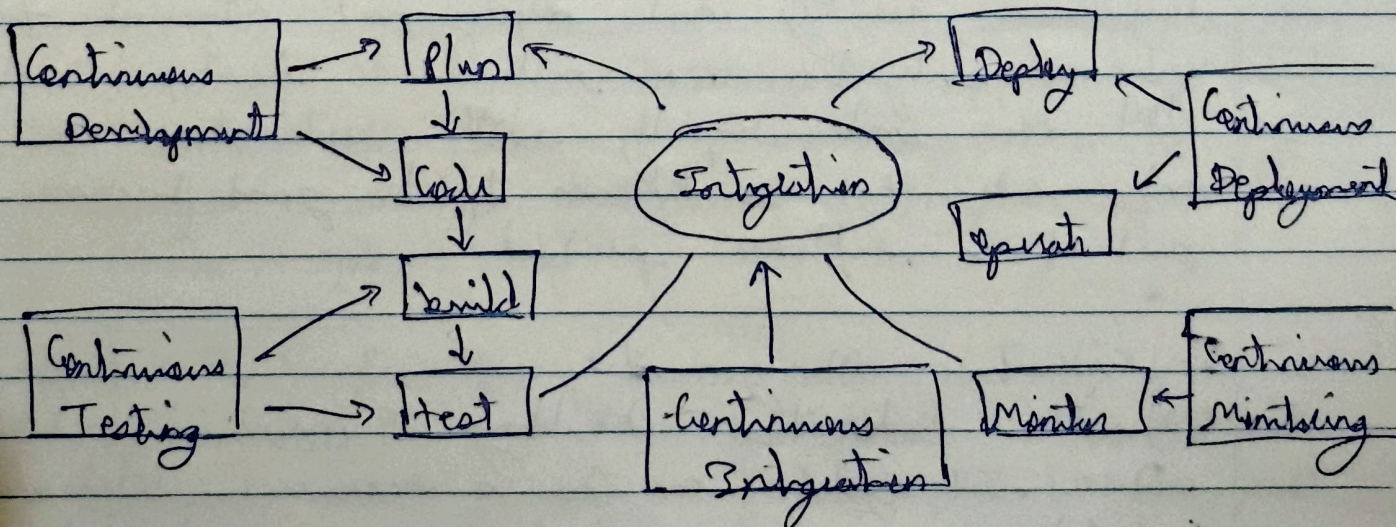 Continuous
Development
Plan
Code
build
test
Continuous
Testing
Integration
Continuous
Integration
Deploy
operate
Monitor
Continuous
Deployment
Continuous
Monitoring